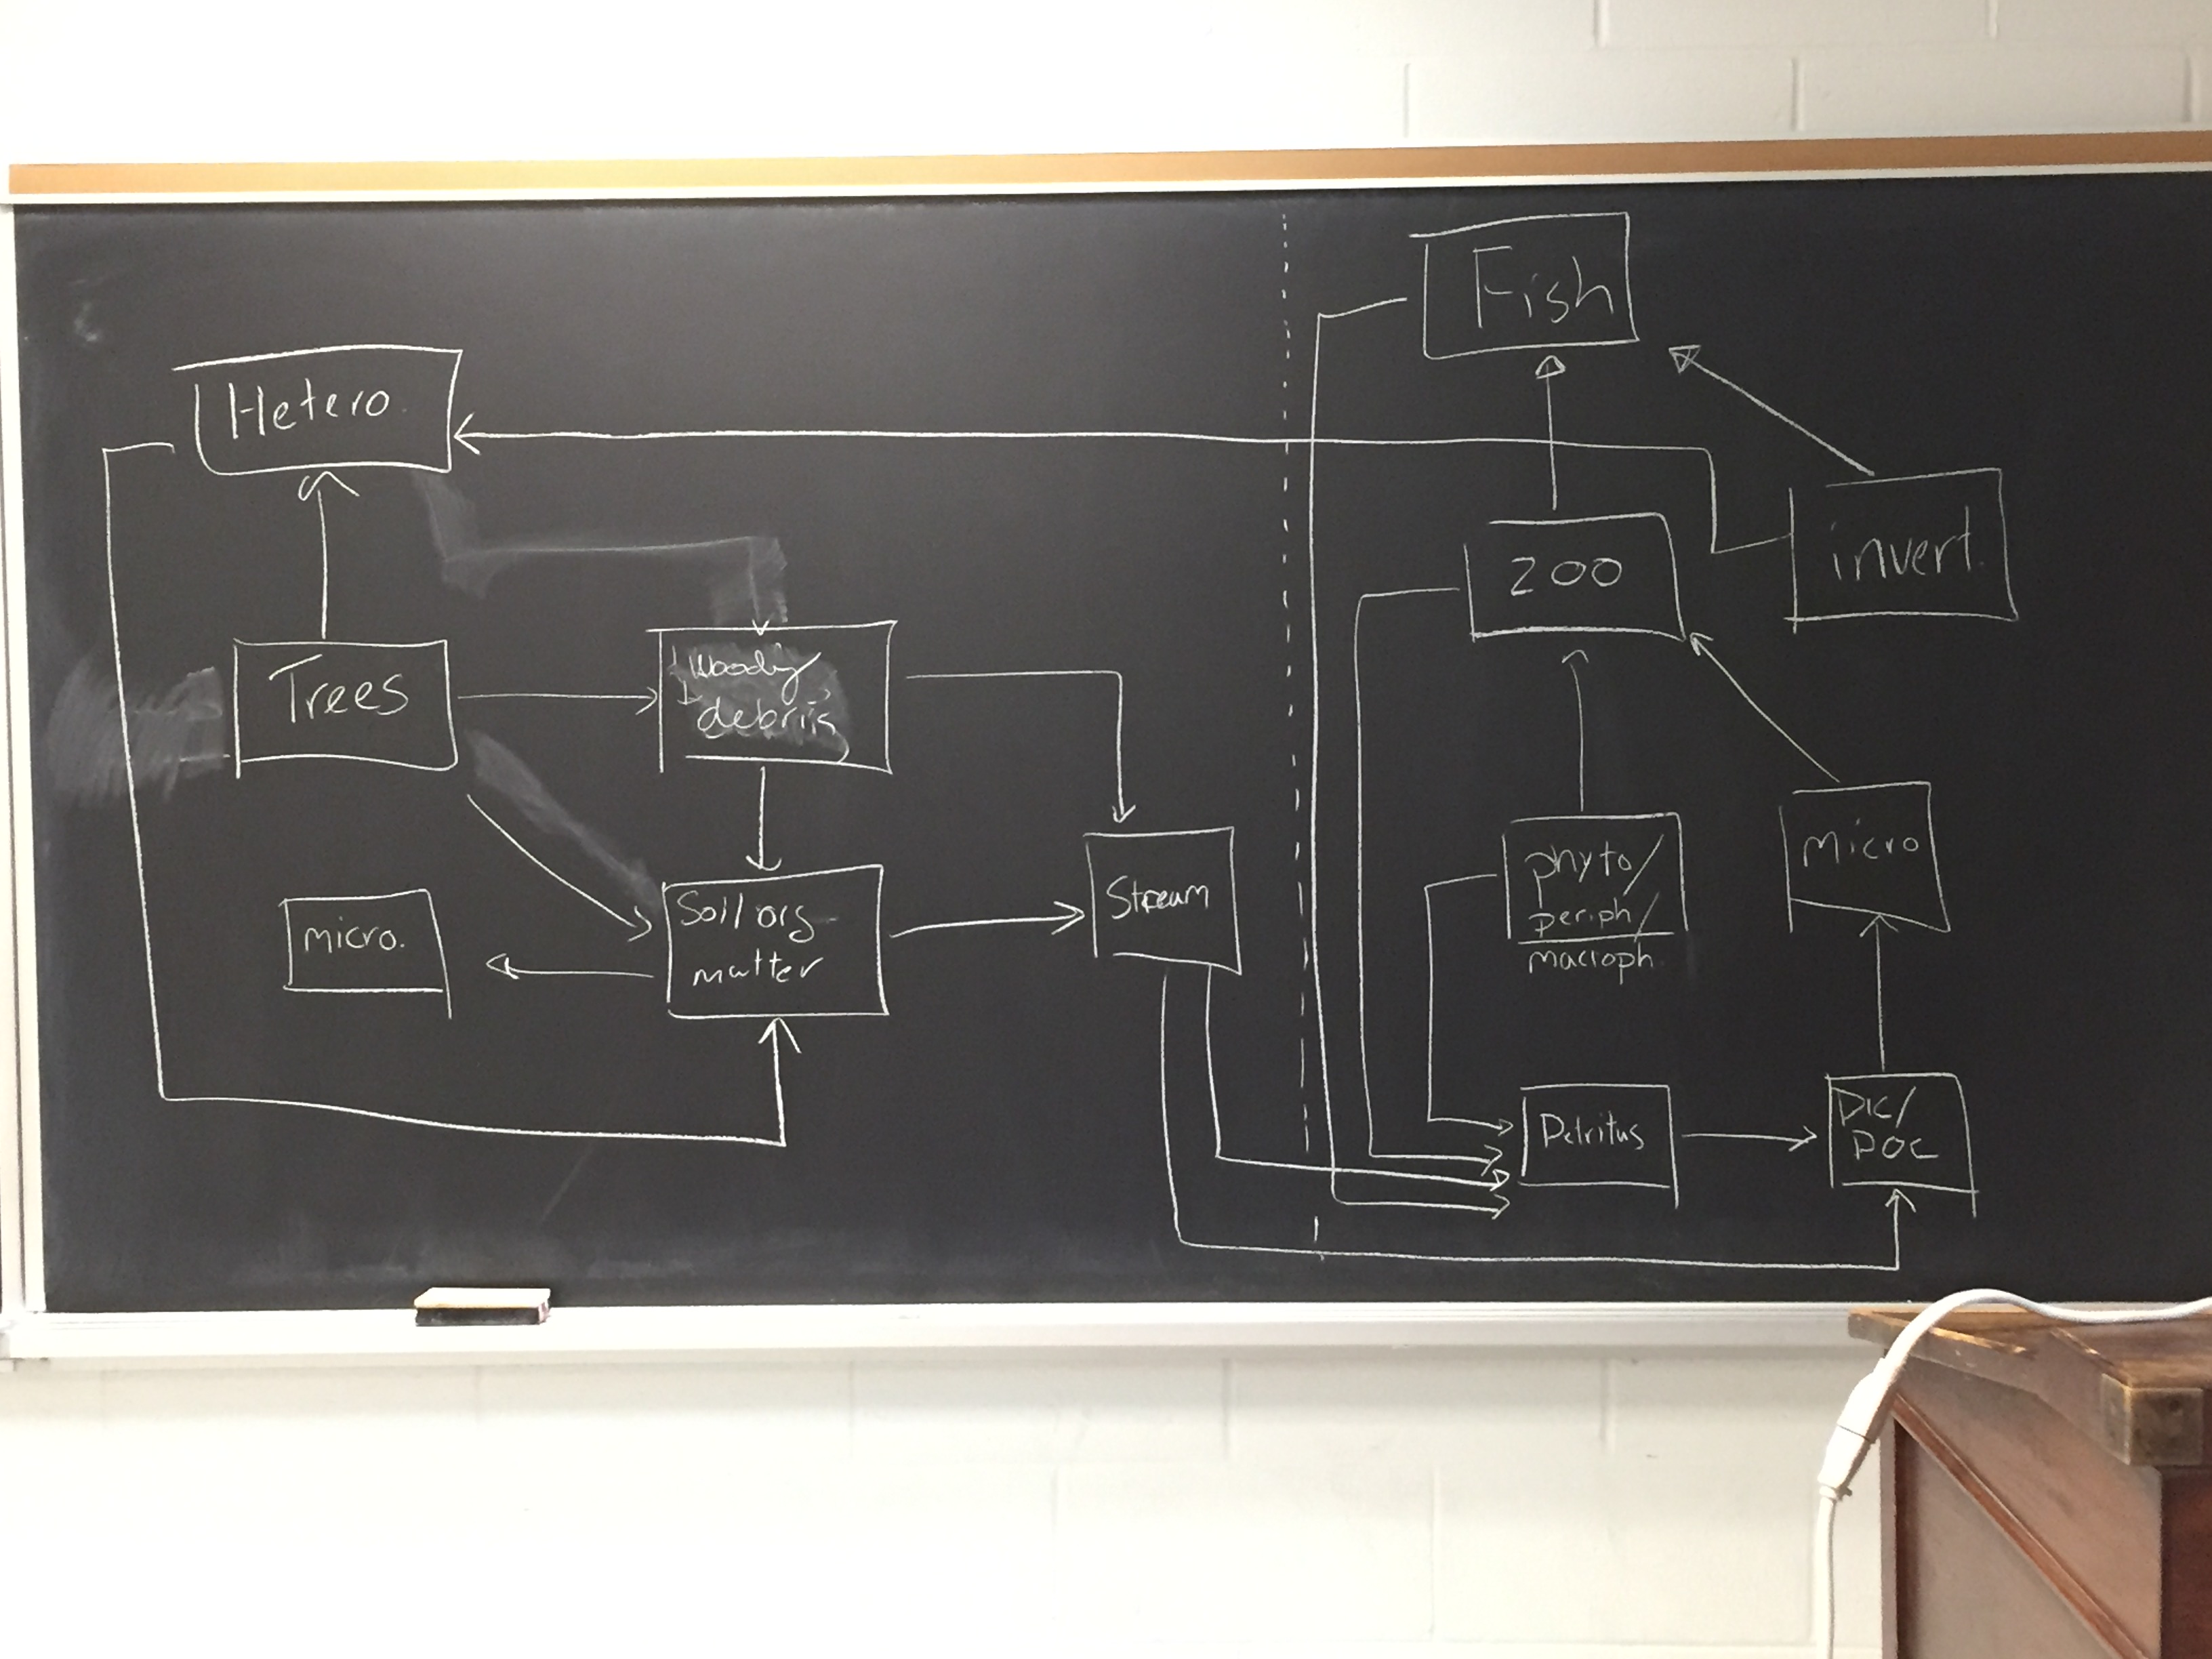 Hetero
Trees
Woody
debris
micro.
Soil/org
matter
Stream
Fish
zoo
invert.
phyto/
periph/
macroph
micro
Detritus
DIC/
DOC